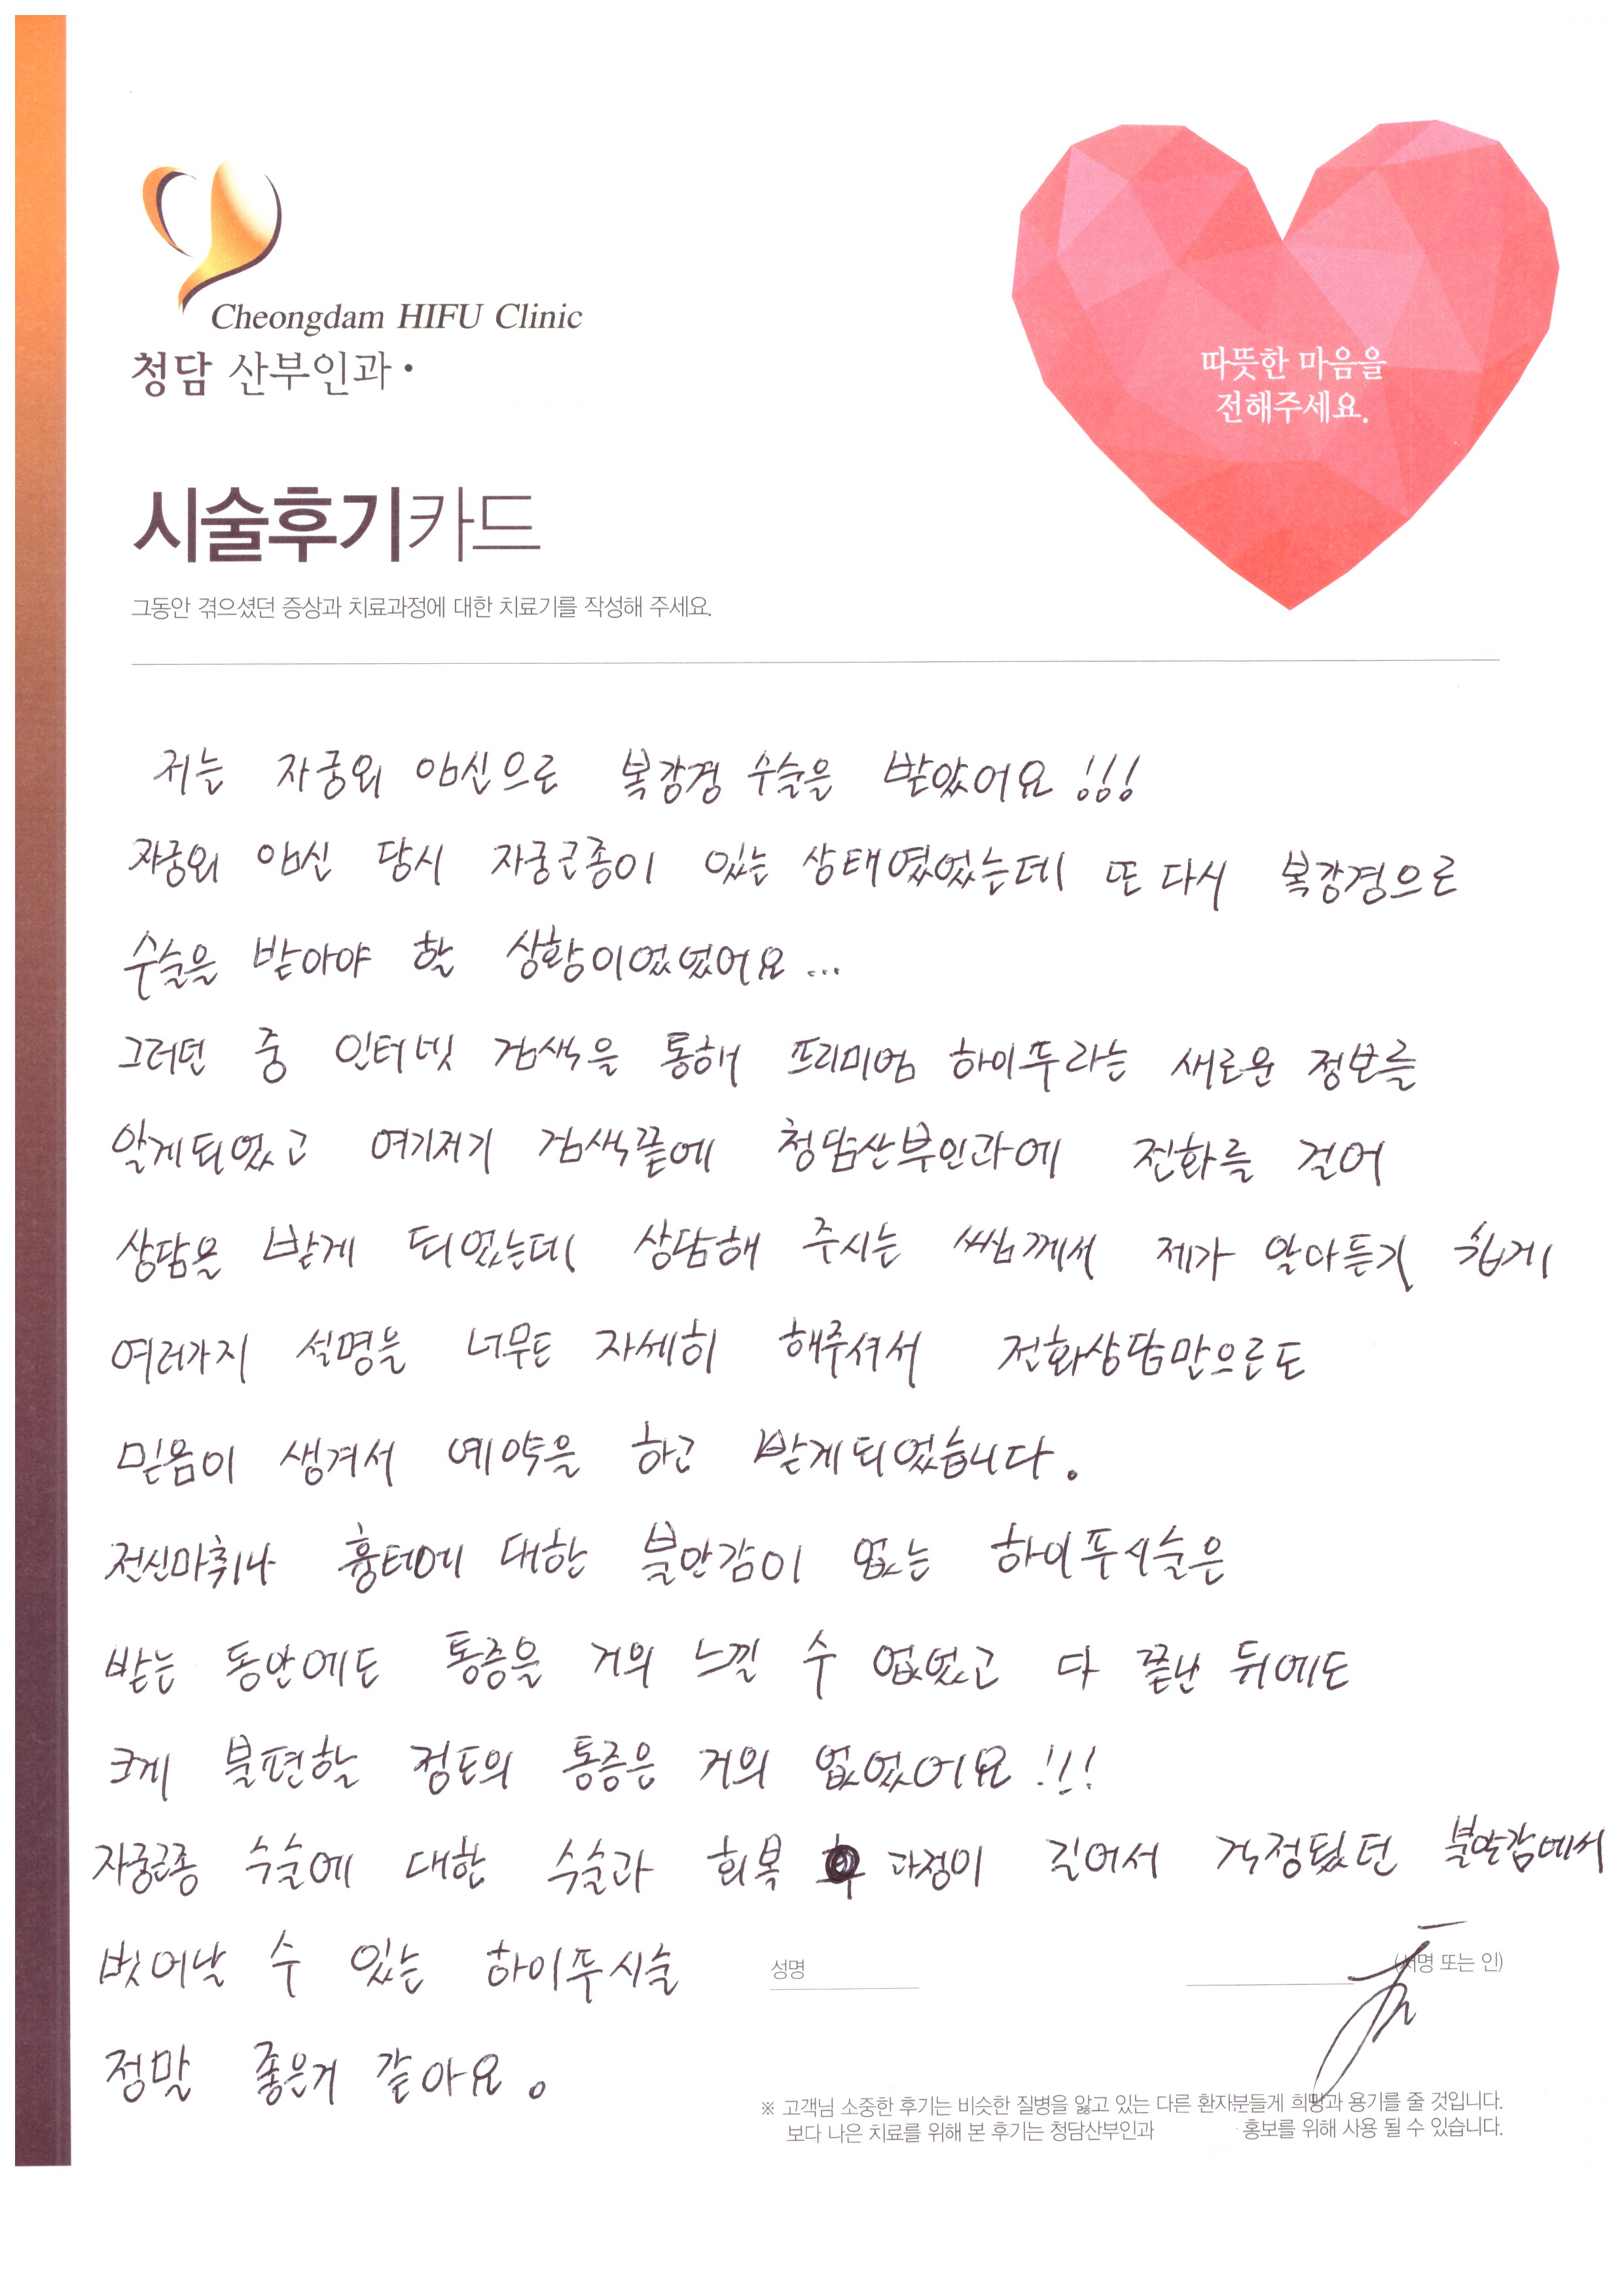 Cheongdam HIFU Clinic
청담 산부인과 •
따뜻한 마음을
전해주세요.
시술후기카드
그동안 겪으셨던 증상과 치료과정에 대한 치료기를 작성해 주세요.
저는 자궁외 임신으로 복강경 수술을 받았어요!!!
자궁외 임신 당시 자궁근종이 있는 상태였었는데 또 다시 복강경으로
수술을 받아야 할 상황이었었어요...
그러던 중 인터넷 검색을 통해 프리미엄 하이푸라는 새로운 정보를
알게되었고 여기저기 검색끝에 청담산부인과에 전화를 걸어
상담을 받게 되었는데 상담해 주시는 쌤께서 제가 알아듣기 쉽게
여러가지 설명을 너무도 자세히 해주셔서 전화상담만으로도
믿음이 생겨서 예약을 하고 받게되었습니다.
전신마취나 흉터에 대한 불안감이 없는 하이푸시술은
받는 동안에도 통증을 거의 느낄 수 없었고 다 끝난 뒤에도
크게 불편할 정도의 통증은 거의 없었어요!!!
자궁근종 수술에 대한 수술과 회복 과정이 길어서 걱정됬던 불안감에서
벗어날 수 있는 하이푸시술
정말 좋은거 같아요.
성명 (서명 또는 인)
※ 고객님 소중한 후기는 비슷한 질병을 앓고 있는 다른 환자분들게 희망과 용기를 줄 것입니다.
보다 나은 치료를 위해 본 후기는 청담산부인과 홍보를 위해 사용 될 수 있습니다.